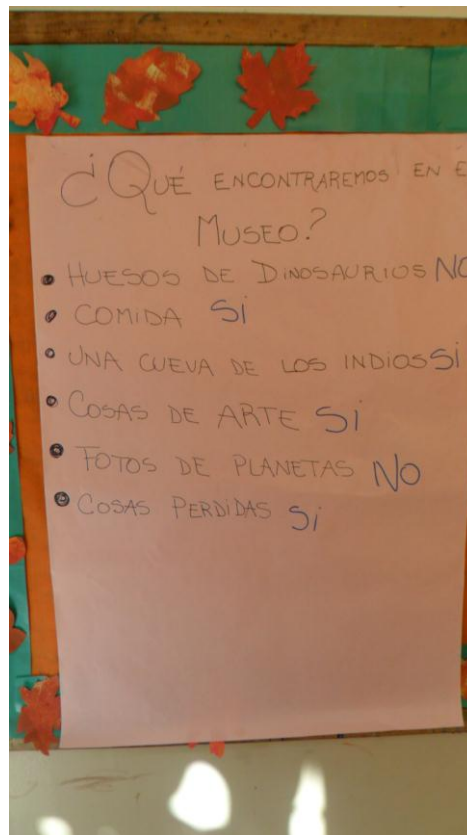 ¿QUÉ ENCONTRAREMOS EN E
MUSEO?
• HUESOS DE DINOSAURIOS NO
• COMIDA SI
• UNA CUEVA DE LOS INDIOS SI
• COSAS DE ARTE SI
• FOTOS DE PLANETAS NO
• COSAS PERDIDAS Si